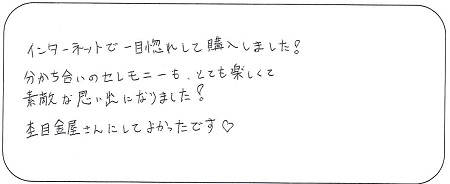 インターネットで一目惚れして購入しました！
分かち合いのセレモニーも、とても楽しくて
素敵な思い出になりました！
杢目金屋さんにしてよかったです♡